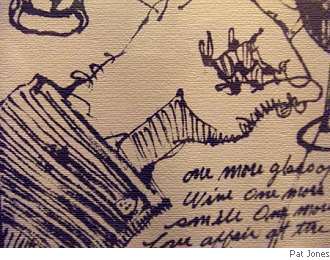 one more glass of
Wine one more
smile one more
love affair at the
Pat Jones